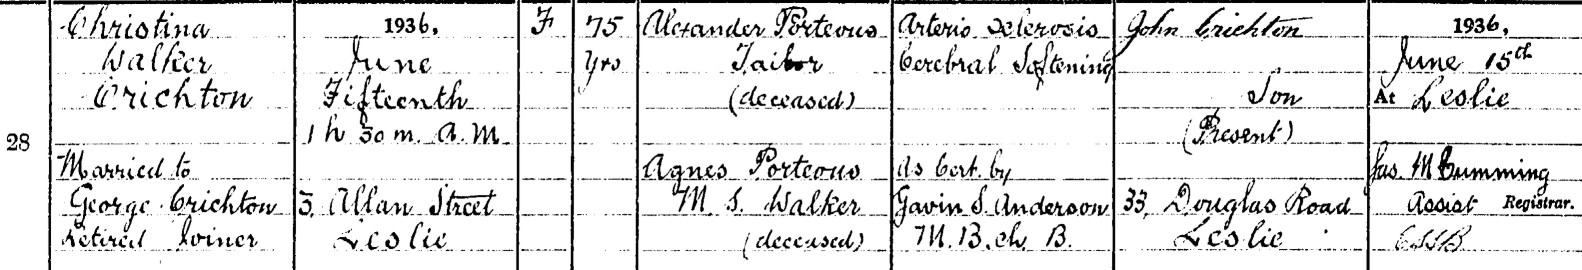 28
Christina
Walker
Crichton
Married to
George Crichton
Retired Joiner
1936,
June
Fifteenth
1 h 30 m. A.M.
3, Allan Street
Leslie
F
75
yrs
Alexander Porteous
Tailor
(deceased)
Agnes Porteous
M. S. Walker
(deceased)
Arterio Sclerosis
Cerebral Softening
As Cert. by
Gavin S. Anderson
M.B., ch. B.
John Crichton
Son
(Present)
33, Douglas Road
Leslie
1936,
June 15th
At Leslie
Jas. M Cumming
Assist Registrar.